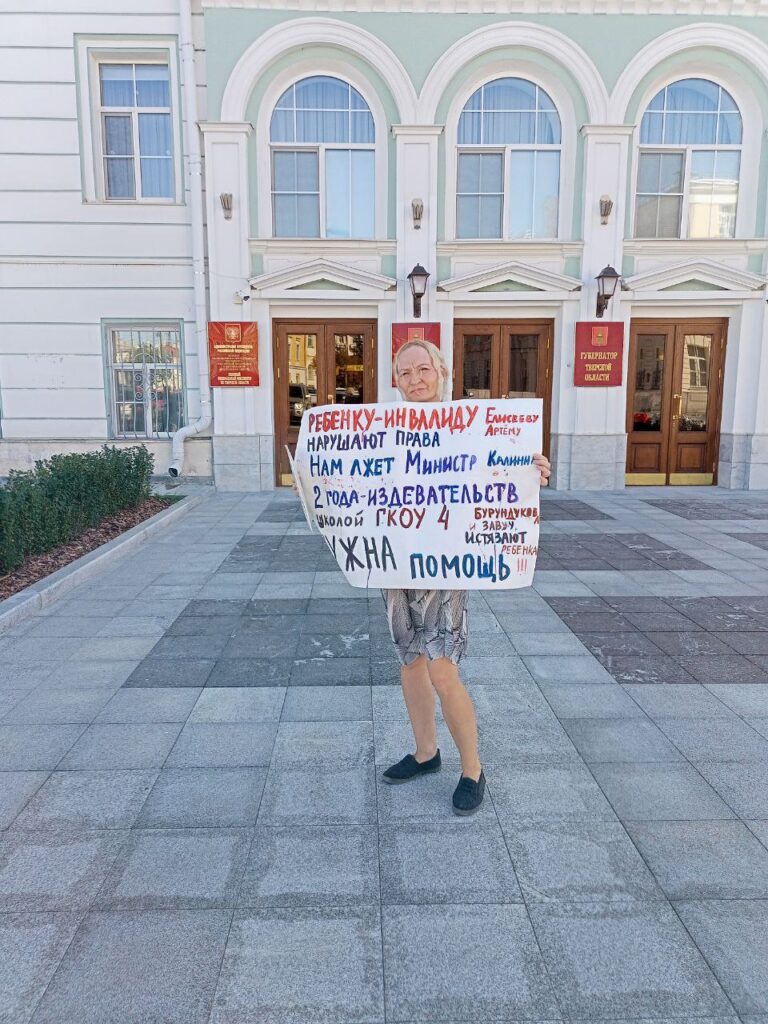 РЕБЕНКУ-ИНВАЛИДУ ЕЛИСЕЕВУ АРТЁМУ
НАРУШАЮТ ПРАВА
НАМ ЛЖЕТ МИНИСТР КАЛИНИ
2 ГОДА-ИЗДЕВАТЕЛЬСТВ
ШКОЛОЙ ГКОУ 4 БУРУНДУКОВА
И ЗАВУЧ.
ИСТЯЗАЮТ
РЕБЕНКА
УЖНА ПОМОЩЬ !!!
ГУБЕРНАТОР
ТВЕРСКОЙ
ОБЛАСТИ